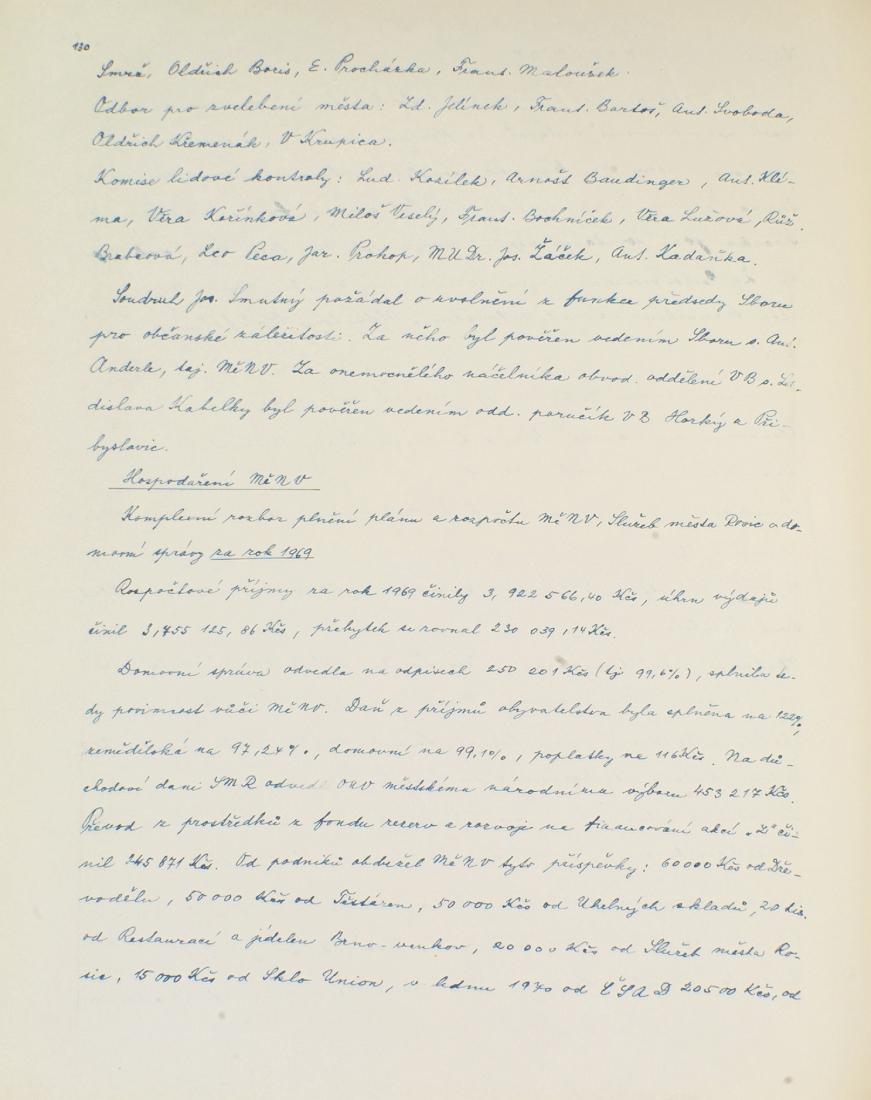 130
Smrž, Oldřich Boris, E. Procházka, Frant. Maloušek.
Odbor pro zvelebení města: Zd. Jelínek, Frant. Bartoš, Ant. Svoboda,
Oldřich Křemenák, V Krupica.
Komise lidové kontroly: Lud. Kozílek, Arnošt Baudinger, Ant. Klí-
ma, Věra Kořínková, Miloš Veselý, Frant. Bochníček, Věra Lužová, Růž.
Brabcová, Leo Peca, Jar. Prokop, MUDr. Jos. Žáček, Ant. Kadaňka.
Soudruh Jos. Smutný požádal o zvolnění z funkce předsedy Sboru
pro občanské záležitosti. Za něho byl pověřen vedením Sboru s. Ant.
Anderle, taj. MěNV. Za onemocnělého náčelníka obvod. oddělení VB s. La-
dislava Kabelky byl pověřen vedením odd. poručík VB Horký z Při-
byslavic.
Hospodaření MěNV
Komplexní rozbor plnění plánu a rozpočtu MěNV, Služeb města Rosic a do-
movní správy za rok 1969
Rozpočtové příjmy za rok 1969 činily 3, 922 566,40 Kčs, úhrn výdajů
činil 3,755 125, 86 Kčs, přebytek se rovnal 230 039,14 Kčs.
Domovní správa odvedla na odpisech 250 201 Kčs (tj 99,6%), splnila te-
dy povinnost vůči MěNV. Daň z příjmů obyvatelstva byla splněna na 122%,
zemědělská na 97,24%, domovní na 99,1%, poplatky na 116 Kčs. Na dů-
chodové dani SMR odvedl ONV městskému národnímu výboru 453 217 Kčs.
Převod z prostředků z fondu reserv a rozvoje na financování akcí „Z" či-
nil 245 871 Kčs. Od podniků obdržel MěNV tyto příspěvky: 60000 Kčs od Dře-
vodělu, 50 000 Kčs od Těstáren, 50 000 Kčs od Uhelných skladů, 20 tis.
od Restaurací a jídelen Brno-venkov, 20 000 Kčs od Služeb města Ro-
sic, 15 000 Kčs od Sklo Union, v lednu 1970 od ČSAD 20500 Kčs, od